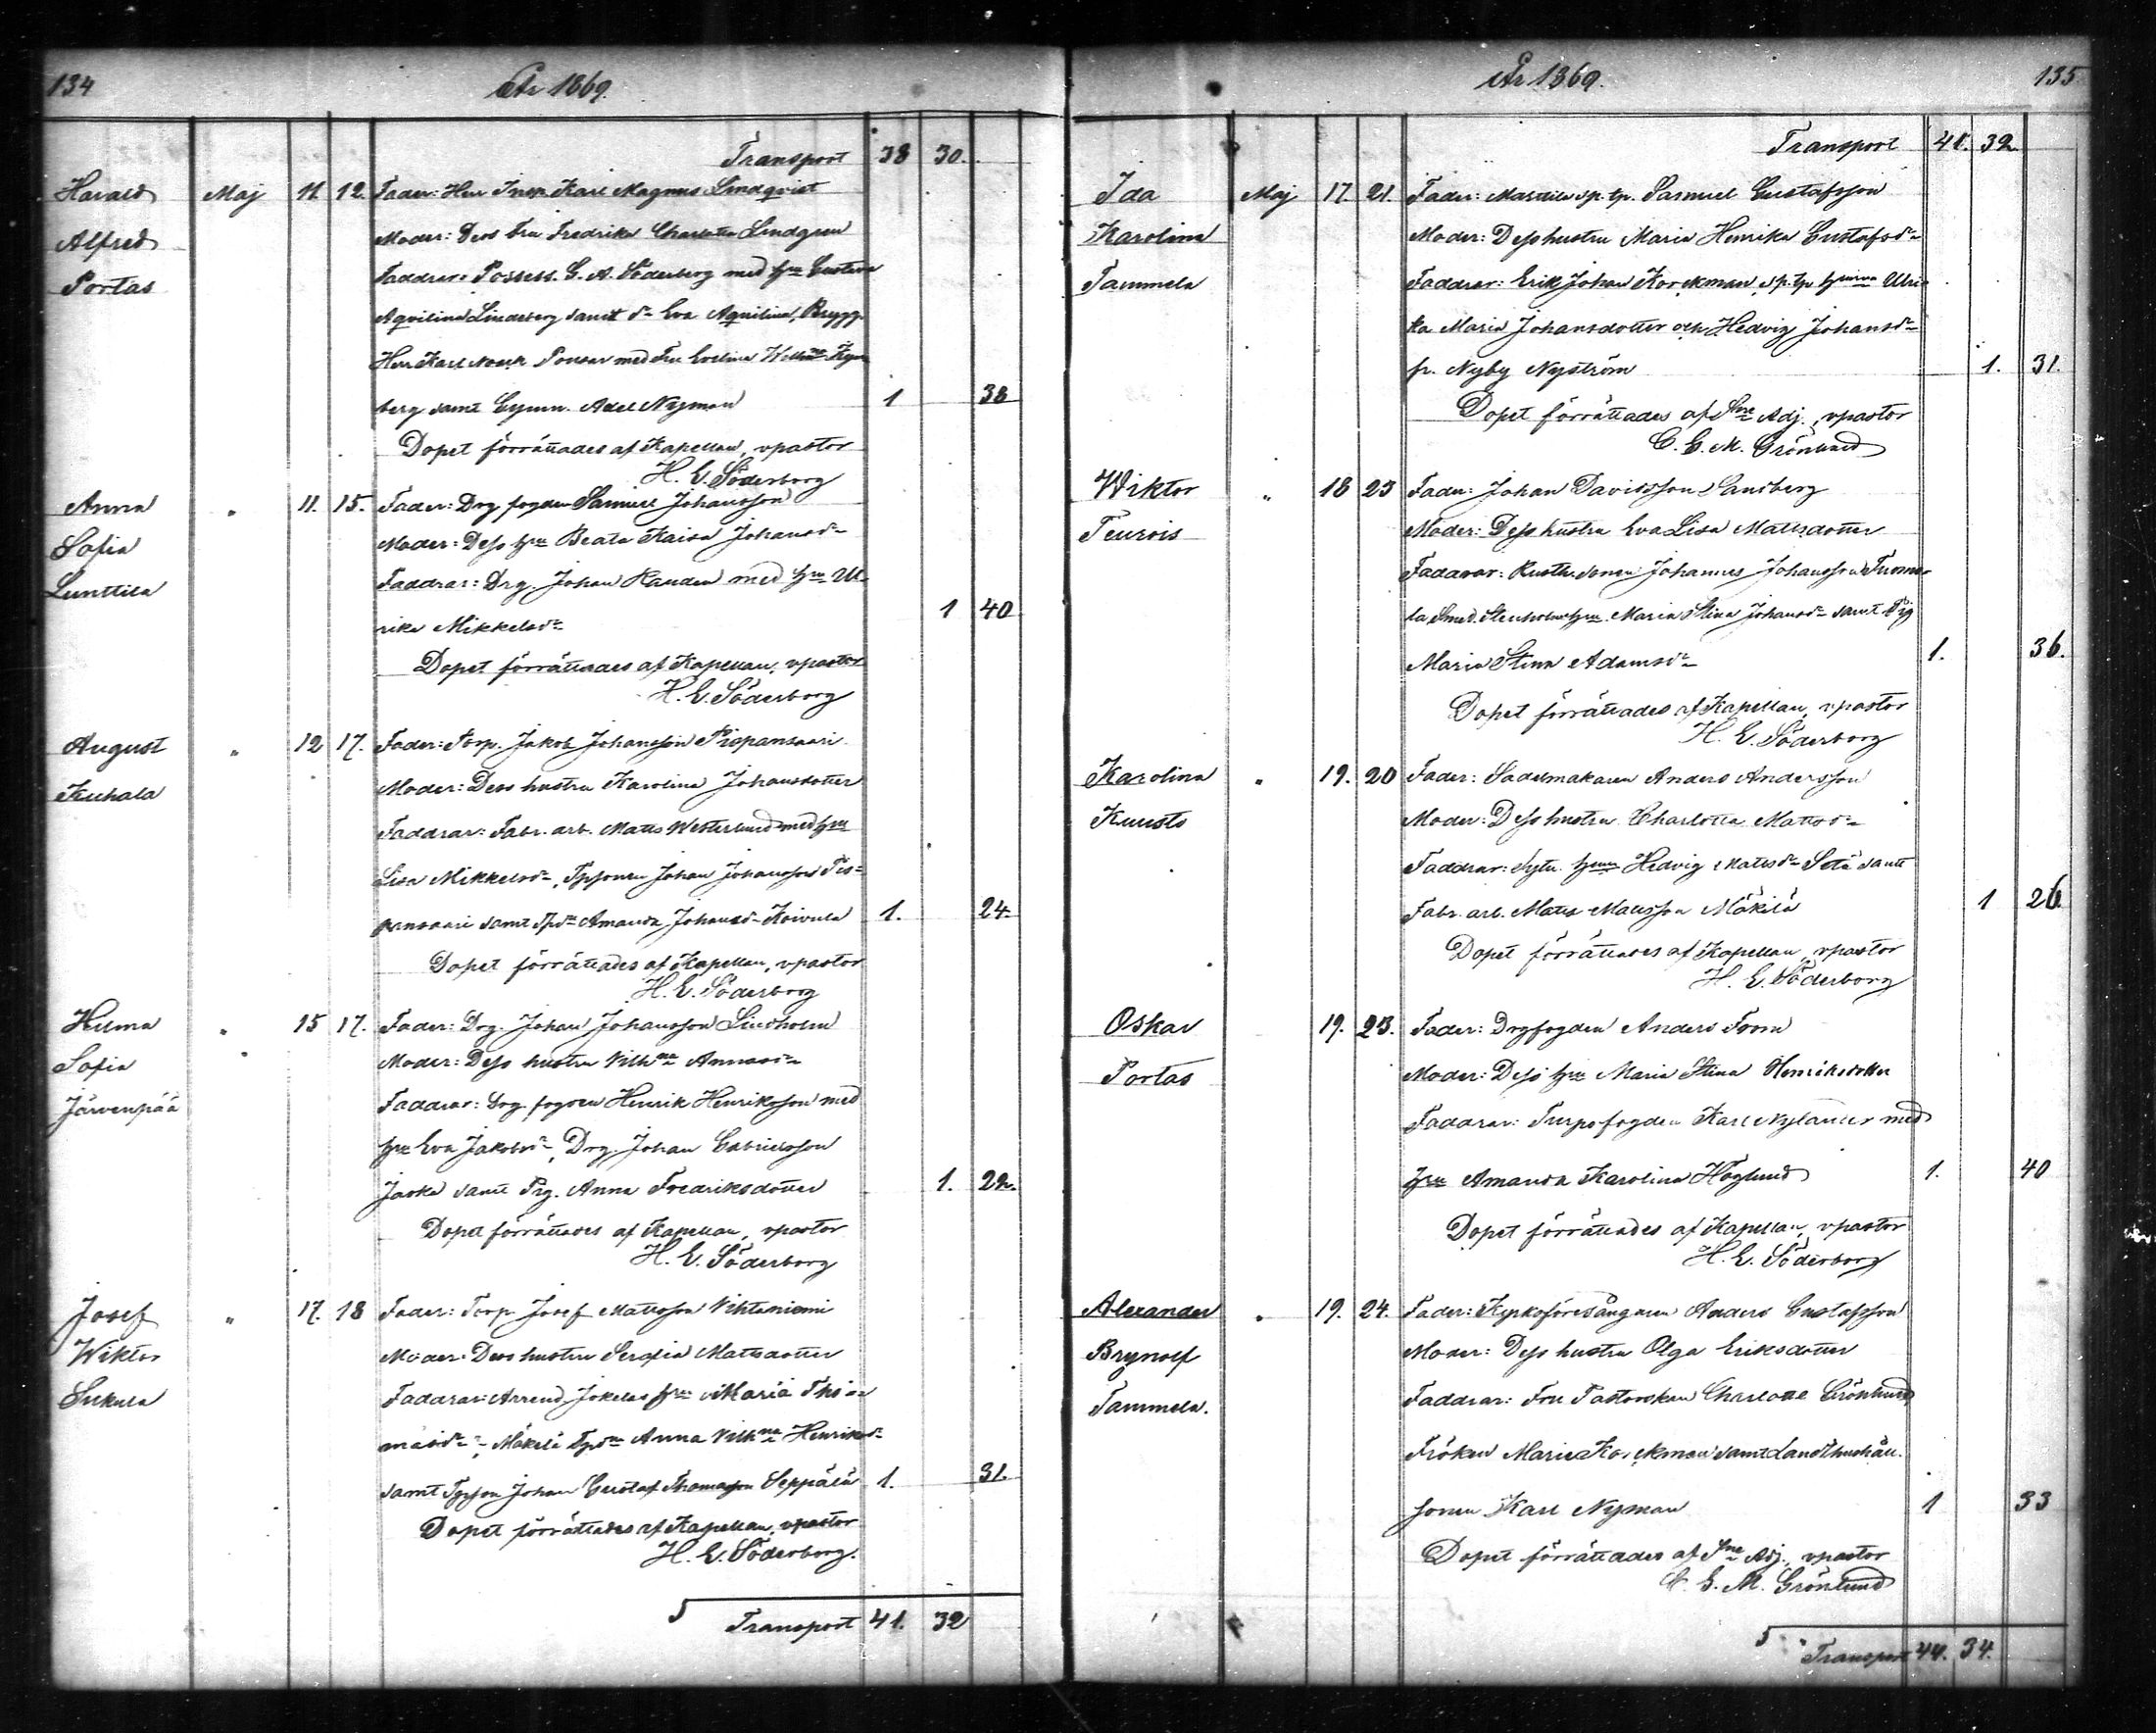 134
År 1869.
Transport 38 30.
Harald Maj 11. 12. Fader: Herr Insp. Karl Magnus Lindqvist
Alfred Moder: Dess Fru Fredrika Charlotta Lindgren
Portas Faddrar: Possess. G. A. Söderberg med hru Gustava
Aqvilina Lindeberg samt dr Eva Aqvilina, Brygg.
Herr Karl Pousar med Fru Evelina
berg samt Gymn. Axel Nyman 1 38
Dopet förrättades af Kapellan, vpastor
H. E. Söderborg
Anna " 11. 15. Fader: Drg fogden Samuel Johansson
Sofia Moder: Dess hru Beata Kaisa Johansdr
Lunttila Faddrar: Drg. Johan med hru Ul-
rika Mikkelsdr 1 40
Dopet förrättades af Kapellan, vpastor
H. E. Söderborg
August " 12 17. Fader: Torp. Jakob Johansson Pispansaari
Kuhala Moder: Dess hustru Karolina Johansdotter
Faddrar: Fabr. arb. Matts Westerlund med hru
Lisa Mikkelsdr, Tpsonen Johan Johansson Pis-
pansaari samt Tpdr Amanda Johansdr Koivula 1. 24
Dopet förrättades af Kapellan, vpastor
H. E. Söderborg
Hilma " 15 17. Fader: Drg. Johan Johansson Lindholm
Sofia Moder: Dess hustru Vilhna Annasdr
Järvenpää Faddrar: Drg. fogden Henrik Henriksson med
hru Eva Jakobsdr, Drg. Johan Gabrielsson
Jaska samt Prg. Anna Fredriksdotter 1. 22.
Dopet förrättades af Kapellan, vpastor
H. E. Söderborg
Josef " 17. 18 Fader: Torp. Josef Mattsson Vihtaniemi
Wiktor Moder: Dess hustru Serafia Mattsdotter
Sukula Faddrar: Arrend. Jokelas hru Maria Tho-
masdr, Mäkelä Tpdr Anna Vilhna Henriksdr
samt Tpson Johan Gustaf Thomasson Seppälä 1. 31.
Dopet förrättades af Kapellan, vpastor
H. E. Söderborg.
5 Transport 41. 32
År 1869.
135
Transport 41. 32
Ida Maj 17. 21. Fader: Marttila sp. tp. Samuel Gustafsson
Karolina Moder: Dess hustru Maria Henrika Gustafsdr
Tammela Faddrar: Erik Johan Korckman, sp. tp. hrurna Ulri-
ka Maria Johansdotter och Hedvig Johansdr
fr. Nyby Nyström 1. 31.
Dopet förrättades af Sne Adj., vpastor
C. G. M. Grönlund
Wiktor " 18 23 Fader: Johan Davidsson Sandberg
Teurois Moder: Dess hustru Eva Lisa Mattsdotter
Faddrar: Rusth. sonen Johannes Johansson Tuomo-
la Smed. Stenholms hru Maria Stina Johansdr samt Pig
Maria Stina Adamsdr 1. 36.
Dopet förrättades af Kapellan, vpastor
H. E. Söderborg
Karolina " 19. 20 Fader: Sadelmakaren Anders Andersson
Kuusto Moder: Dess hustru Charlotta Mattsdr
Faddrar: Sytn. Hedvig Mattsdr Setä samt
Fabr. arb. Matts Mattsson Mäkilä 1 26.
Dopet förrättades af Kapellan, vpastor
H. E. Söderborg
Oskar 19. 23. Fader: Drgfogden Anders Form
Portas Moder: Dess hru Maria Stina Henriksdotter
Faddrar: Karl Nylander med
hru Amanda Karolina Höglund 1. 40
Dopet förrättades af Kapellan, vpastor
H. E. Söderborg
Alexander " 19. 24. Fader: Kyrkoföresångaren Anders Gustafsson
Brynolf Moder: Dess hustru Olga Eriksdotter
Tammela. Faddrar: Fru Pastorskan Charlotte Grönlund
Fröken Marie Korckman samt Landthushåll.
sonen Karl Nyman 1 33
Dopet förrättades af Sne Adj., vpastor
C. G. M. Grönlund
5 Transport 44. 34.